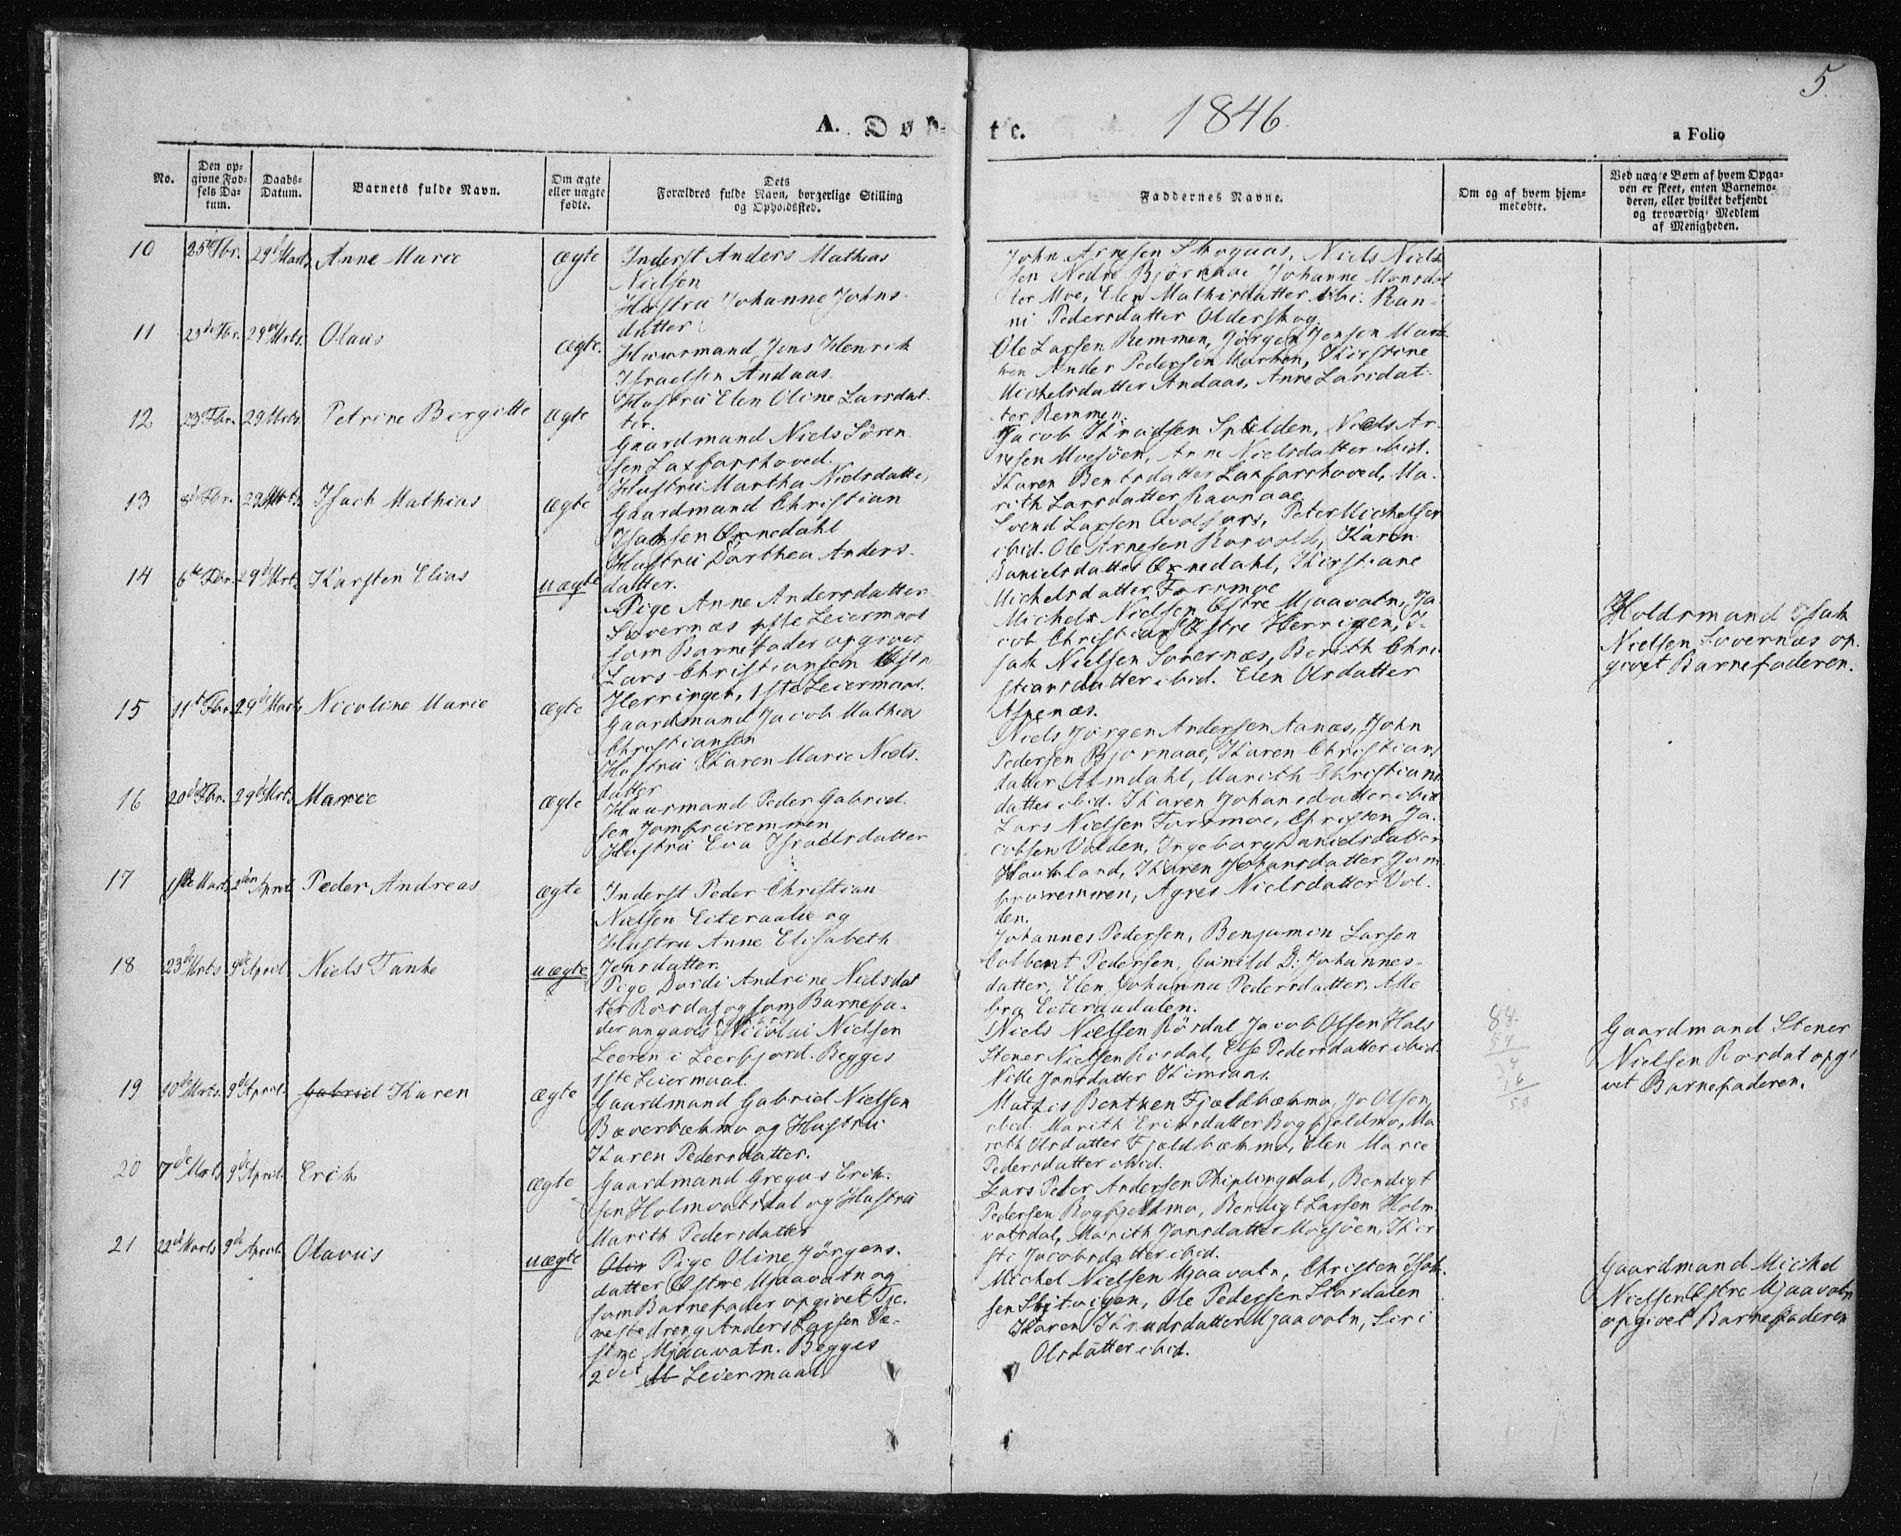 5.
1846
A. Døb-
te.
a Folio
No.
Den op-
givne Fød-
sels Da-
tum.
Daabs-
Datum.
Barnets fulde Navn.
Om ægte
eller uægte
fødte.
Dets
Forældres fulde Navn, borgerlige Stilling
og Opholdssted.
Faddernes Navne.
Om og af hvem hjem-
medøbte.
Ved uægte Børn af hvem Opga-
ven er skeet, enten Barnemo-
deren, eller hvilket bekjendt
og troværdigt Medlem
af Menigheden.
10 25de Fbr. 29de Marts Anne Marie ægte
Inderst Anders Mathias
Nielsen
Hustru Johanne Johns-
datter
John Arnesen Skogaas, Niels Niel-
sen Nedre Bjørnaae Johanne Monsdat
ter Moe, Elen Mathisdatter ibi. Ran-
ni Pedersdatter Olderskog.
11 23de Fbr. 29de Mrts. Olaus ægte.
Huusmand Jens Henrik
Israelsen Andaas.
Hustru Elen Oline Larsdat-
ter.
Ole Larsen Remmen, Jørgen Jensen Mark
ken Ander Pedersen Marken, Kirstine
Michelsdatter Andaas, Anne Larsdat-
ter Remmen.
12 23de Fbr. 29 Mrts. Petrine Birgitte ægte
Gaardmand Niels Søren
sen Laxforshoved.
Hustru Martha Nielsdatter
Jacob Knudsen Spilden, Niels Ar-
nesen Moesøen, Anne Nielsdatter ibid.
Karen Bentsdatter Laxforshoved, Ma-
rith Larsdatter Ravnaae
13 8de Fbr. 29 Mrts. Isach Mathias ægte
Gaardmand Christian
Isachsen Ørnedahl
Hustru Dorthea Anders-
datter.
Svend Larsen Qvalfors, Peter Michelsen
ibid. Ole Arnesen Korvold, Karen
Danielsdatter Ørnedahl, Kirstiane
Michelsdatter Forsmoe
14 6te Fbr. 29de Mrts. Karsten Elias uægte
Pige Anne Andersdatter
Sovernæs 1ste Leiermaal
som Barnefader opgives
Lars Christiansen Østre
Herringen, 1ste Leiermaal.
Michel Nielsen Østre Mjaavatn, Ja-
cob Christian Østre Herringen, I-
sak Nielsen Sovernæs, Berith Chri-
stiansdatter ibid. Elen Olsdatter
Aspenæs.
Holdsmand Isak
Nielsen Sovernæs op-
givet Barnefaderen.
15 11te Fbr. 29de Marts Nicoline Marie ægte
Gaardmand Jacob Mathias
Christiansen
Hustru Karen Marie Niels-
datter
Niels Jørgen Andersen Aanæs, John
Pedersen Bjørnaae, Karen Christians
datter Almdahl, Marith Christians
datter ibid. Karen Johansdatter ibid
16 20de Fbr. 29de Mrts Marie ægte
Huusmand Peder Gabriel-
sen Jomfruremmen
Hustru Eva Israelsdatter
Lars Nielsen Forsmoe, Christen Ja-
cobsen Volden, Ingeborg Danielsdatter
Haukland, Karen Johansdatter Jom
fruremmen, Agnes Nielsdatter Vol-
den.
17 1ste Marts 2den April. Peder Andreas ægte
Inderst Peder Christian
Nielsen Eiteraalie og
Hustru Anne Elisabeth
Jensdatter.
Johannes Pedersen, Benjamin Larsen
Colbent Pedersen, Gunild D: Johannes-
datter, Elen Johanna Pedersdatter, Alle
fra Eiteraadalen.
18 23de Mrts 9de April. Niels Tanke uægte
Pige Dordi Andrine Nielsdat
ter Rørdal og som Barnefa-
der angaves Nicolai Nielsen
Leeren i Leerfjord. Begges
1ste Leiermaal.
Niels Nielsen Rørdal Jacob Olsen Hals
Stener Nielsen Rørdal, Else Pedersdatter ibid.
Nille Jonsdatter Kimrans.
88.
54
34
16
50
Gaardmand Stener
Nielsen Rørdal opgi
vet Barnefaderen.
19 10de Mrts. 9de April. Gabriel Karen ægte
Gaardmand Gabriel Nielsen
Bæverbækmo og Hustru
Karen Pedersdatter.
Mathis Bentzen Fjeldbækmo, Jo Olsen,
ibid. Marith Eriksdatter Bogfjeldmo, Ma
rith Olsdatter Fjeldbækmo, Elen Marie
Pedersdatter ibid.
20 7de Mrts 9de April. Erik ægte
Gaardmand Gregus Erik-
sen Holmvatsdal og Hustru
Marith Pedersdatter
Lars Peter Andersen Stiplingdal, Bendigt
Pedersen Bogfjeldmo, Bendigt Larsen Holm
vatsdal, Marith Jonsdatter Moesøen, Kir-
sti Jacobsdatter ibid.
21 22de Marts 9de April. Olavus uægte
Olin Pige Oline Jørgens-
datter Østre Mjaavatn og
som Barnefader opgivet Tje-
nestedreng Anders Larsen Ve-
stre Mjaavatn. Begges
2det Leiermaal.
Michel Nielsen Mjaavatn, Christen Isak-
sen Slitvigen, Ole Pedersen Stordalen
Karen Knudsdatter Mjaavatn, Siri
Olsdatter ibid.
Gaardmand Michel
Nielsen Østre Mjaavatn
opgivet Barnefaderen